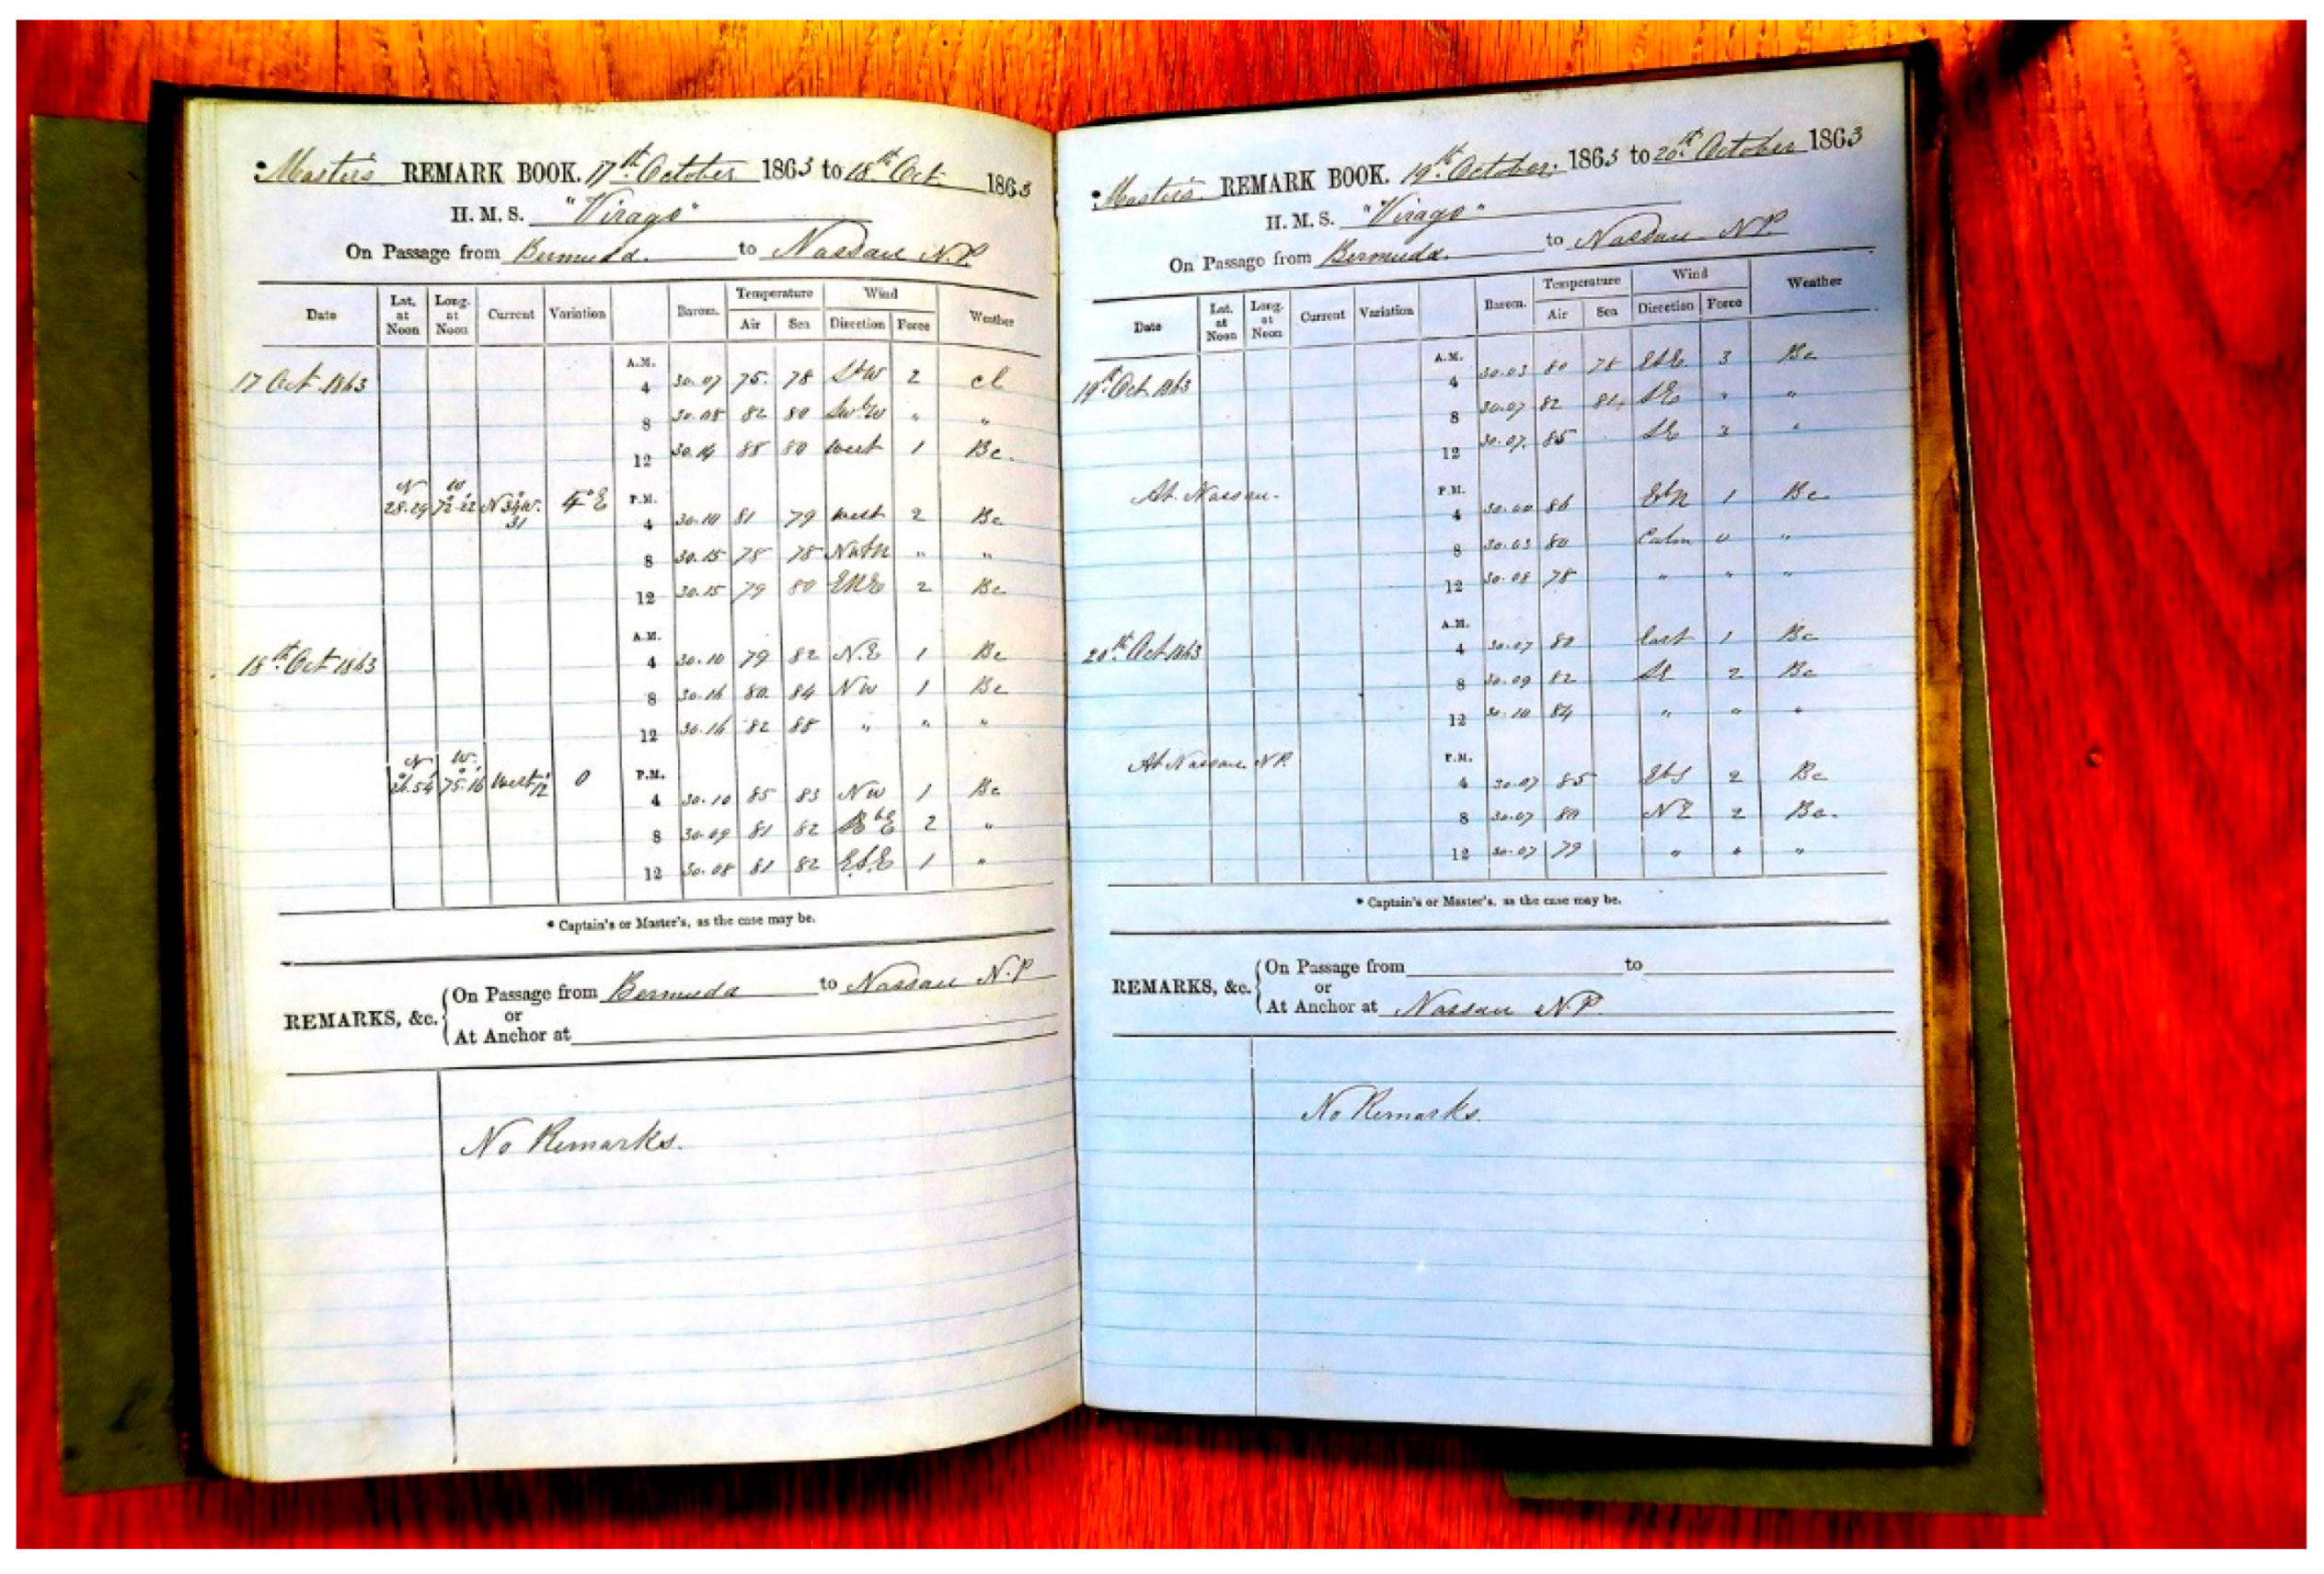 * Master's REMARK BOOK. 17th October 1863 to 18th Oct. 1863
H. M. S. "Virago"
On Passage from Bermuda. to Nassau N.P.
Date Lat. at Noon Long. at Noon Current Variation Barom. Temperature Air Sea Wind Direction Force Weather
A.M.
17 Oct 1863 4 30.07 75. 78 SbW 2 cl
8 30.08 82 80 SWbW " "
12 30.14 88 80 West 1 Bc.
N W
28.29 72.22 N34W. 31 4°E P.M.
4 30.10 81 79 West 2 Bc
8 30.15 78 78 NWbN " "
12 30.15 79 80 ENE 2 Bc
A.M.
18th Oct 1863 4 30.10 79 82 N.E 1 Bc
8 30.16 80 84 NW 1 Bc
12 30.16 82 88 " " "
N W.
26.54 75.16 West 12 0 P.M.
4 30.10 85 83 NW 1 Bc
8 30.09 81 82 2 "
12 30.08 81 82 E.S.E 1 "
* Captain's or Master's, as the case may be.
REMARKS, &c. On Passage from Bermuda to Nassau N.P
or
At Anchor at
No Remarks.
* Master's. REMARK BOOK. 19th October; 1863 to 20th October 1863
H. M. S. "Virago"
On Passage from Bermuda. to Nassau NP.
Date Lat. at Noon Long. at Noon Current Variation Barom. Temperature Air Sea Wind Direction Force Weather
A.M.
19th Oct 1863 4 30.03 80 78 ESE 3 Bc
8 30.07 82 81 SE " "
12 30.07. 85 SE 3 "
At Nassau. P.M.
4 30.00 86 EbN 1 Bc
8 30.03 80 Calm 0 "
12 30.08 78 " " "
A.M.
20th Oct 1863 4 30.07 80 East 1 Bc
8 30.09 82 SE 2 Bc
12 30.10 84 " " "
At Nassau NP. P.M.
4 30.07 85 EbS 2 Bc
8 30.07 80 NE 2 Bc.
12 30.07 79 " " "
* Captain's or Master's, as the case may be.
REMARKS, &c. On Passage from to
or
At Anchor at Nassau NP.
No Remarks.